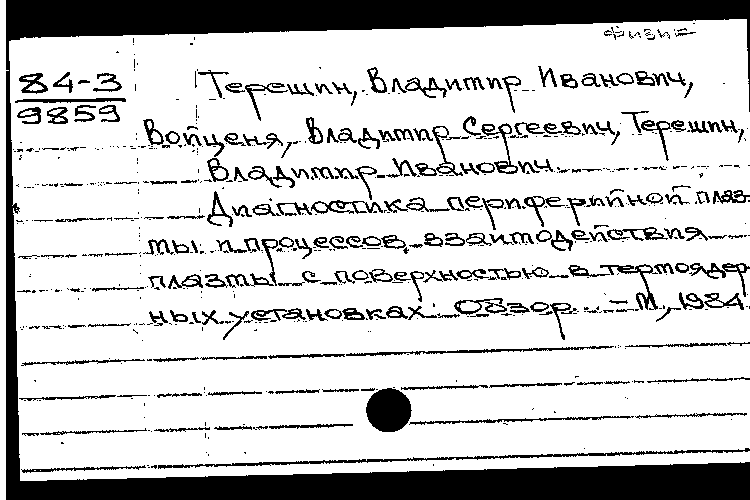 Физи
84-3
9859
Терешин, Владимир Иванович,
Войценя, Владимир Сергеевич, Терешин,
Владимир Иванович.
Диагностика периферийной плаз
мы и процессов взаимодействия
плазмы с поверхностью в термоядер
ных установках: Обзор. - М., 1984